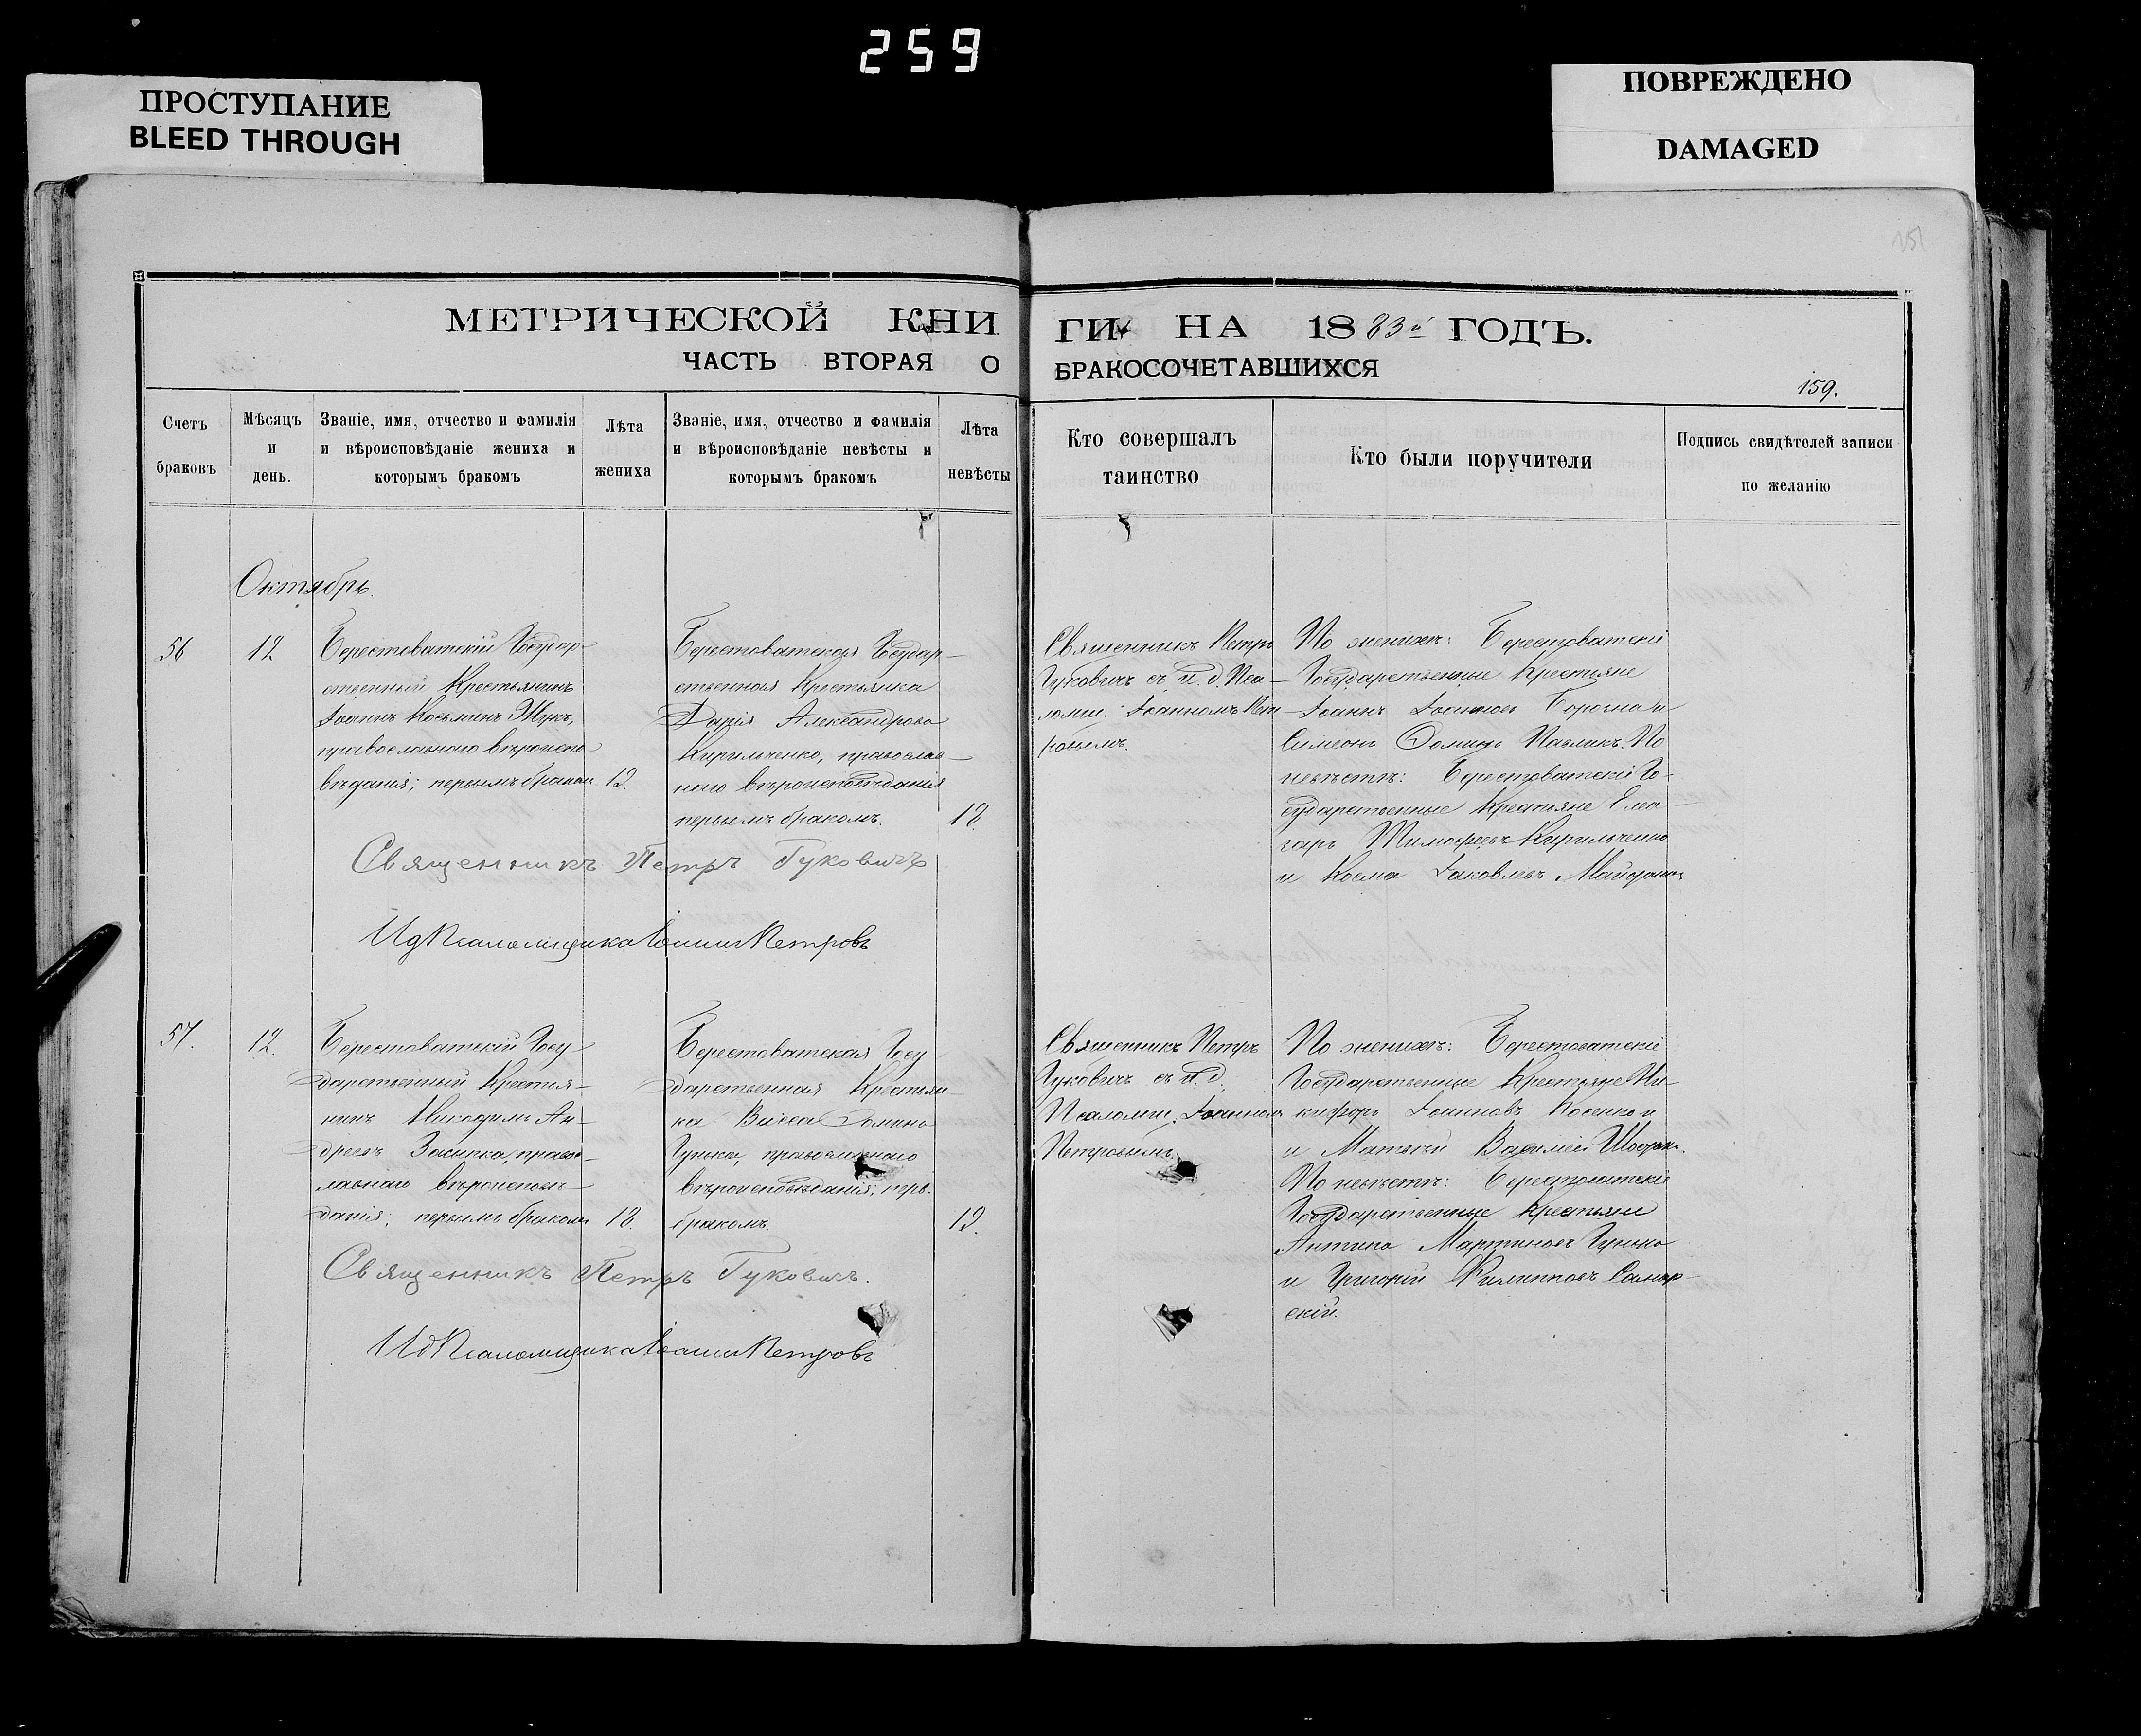 259
ПРОСТУПАНИЕ
BLEED THROUGH
ПОВРЕЖДЕНО
DAMAGED
151
МЕТРИЧЕСКОЙ КНИ
ГИ НА 1883й ГОДЪ.
ЧАСТЬ ВТОРАЯ О
БРАКОСОЧЕТАВШИХСЯ
159.
Счетъ
браковъ
Мѣсяцъ
и
день.
Званіе, имя, отчество и фамилія
и вѣроисповѣданіе жениха и
которымъ бракомъ
Лѣта
жениха
Званіе, имя, отчество и фамилія
и вѣроисповѣданіе невѣсты и
которымъ бракомъ
Лѣта
невѣсты
Кто совершалъ
таинство
Кто были поручители
Подпись свидѣтелей записи
по желанію
Октябрь.
56
12
Берестоватскій Государ-
ственный Крестьянинъ
Іоаннъ Косьминъ Жукъ,
православнаго вѣроиспо-
вѣданія; первымъ бракомъ
19.
Берестоватская Государ-
ственная Крестьянка
Дарія Александрова
Кирильченко, православ-
наго вѣроисповѣданія
первымъ бракомъ.
18.
Священникъ Петръ
Гуковичъ съ и. д. Пса-
ломщ. Іоанномъ Пет-
ровымъ.
По женихѣ: Берестоватскіе
Государственные Крестьяне
Іоаннъ Іоанновъ и
Симеонъ Павликъ. По
невѣстѣ: Берестоватскіе Го-
сударственные Крестьяне Елеа-
заръ Тимофеевъ Кирильченко
и Косма Іаковлевъ
Священникъ Петръ Гуковичъ
И д Псаломщика Іоаннъ Петровъ
57.
12.
Берестоватскій Госу-
дарственный Крестья-
нинъ Никодимъ Ан-
дреевъ Засипка, правос-
лавнаго вѣроисповѣ-
данія; первымъ бракомъ
18.
Берестоватская Госу-
дарственная Крестьян-
ка
православнаго
вѣроисповѣданія; перв.
бракомъ.
19.
Священникъ Петръ
Гуковичъ съ и. д.
Псаломщ. Іоанномъ
Петровымъ.
По женихѣ: Берестоватскіе
Государственные Крестьяне Ни-
кифоръ Іоанновъ Косенко и
и Матвѣй
По невѣстѣ: Берестоватскіе
Государственные Крестьяне
Антипа Мартиновъ
и Григорій Филипповъ Самар-
скій.
Священникъ Петръ Гуковичъ.
И д Псаломщика Іоаннъ Петровъ